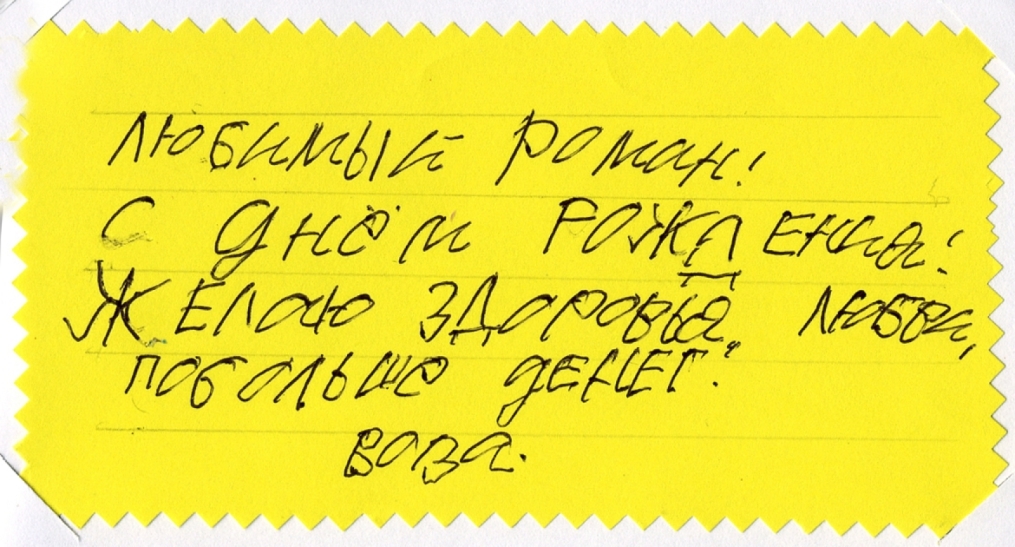 Любимый Роман!
С днём рождения!
Желаю здоровья, любви,
побольше денег.
Ваза.